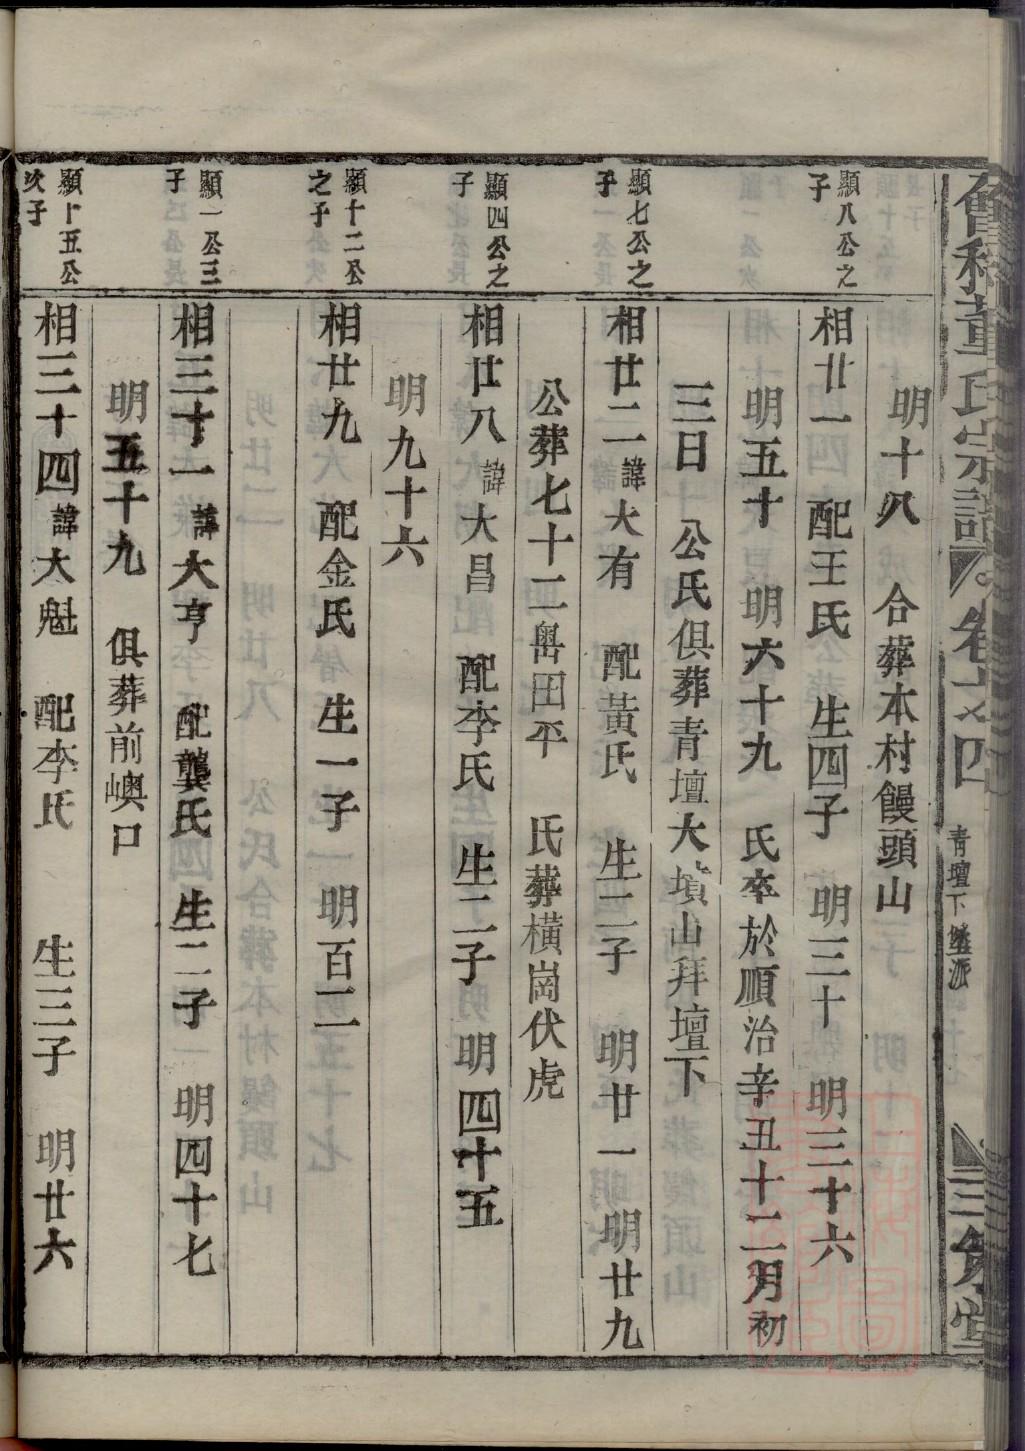 會稽董氏宗譜 卷六四 青壇下堡派 三策堂
明十八 合葬本村饅頭山
顯八公之子
相廿一 配王氏 生四子 明三十 明三十六
明五十 明六十九 氏卒於順治辛丑十二月初
三日 公氏俱葬青壇大墳山拜壇下
顯七公之子
相廿二諱大有 配黃氏 生二子 明廿一 明廿九
公葬七十二畧田平 氏葬橫崗伏虎
顯四公之子
相廿八諱大昌 配李氏 生二子 明四十五
明九十六
顯十二公之子
相廿九 配金氏 生一子 明百二
顯一公三子
相三十一諱大亨 配龔氏 生二子 明四十七
明五十九 俱葬前㠗口
顯十五公次子
相三十四諱大魁 配李氏 生三子 明廿六